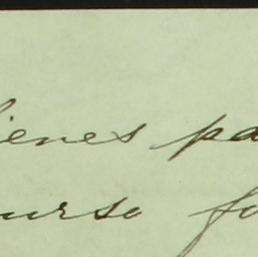 ienes pa
urso fo